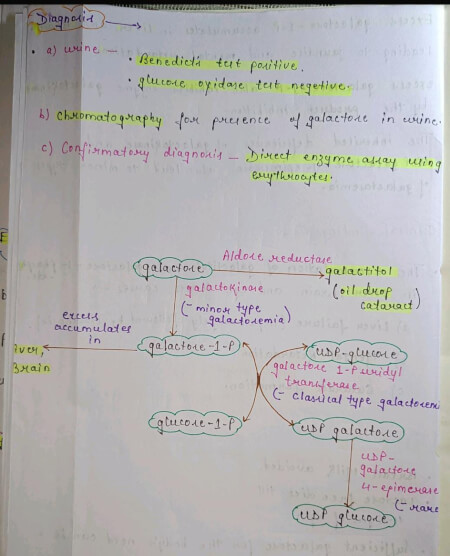 Diagnosis
• a) urine — • Benedicts test positive.
• glucose oxidase test negetive.
b) Chromatography for presence of galactose in urine.
c) Confirmatory diagnosis — Direct enzyme assay using
erythrocytes.
galactose
Aldose reductase
galactitol
(oil drop
cataract)
galactokinase
(- minor type
galactosemia)
excess
accumulates
in
iver,
Brain
galactose-1-P
UDP-glucose
galactose 1-P uridyl
transferase
(- classical type galactosemi
glucose-1-P
UDP galactose
UDP-
galactose
4-epimerase
(- rare
UDP glucose